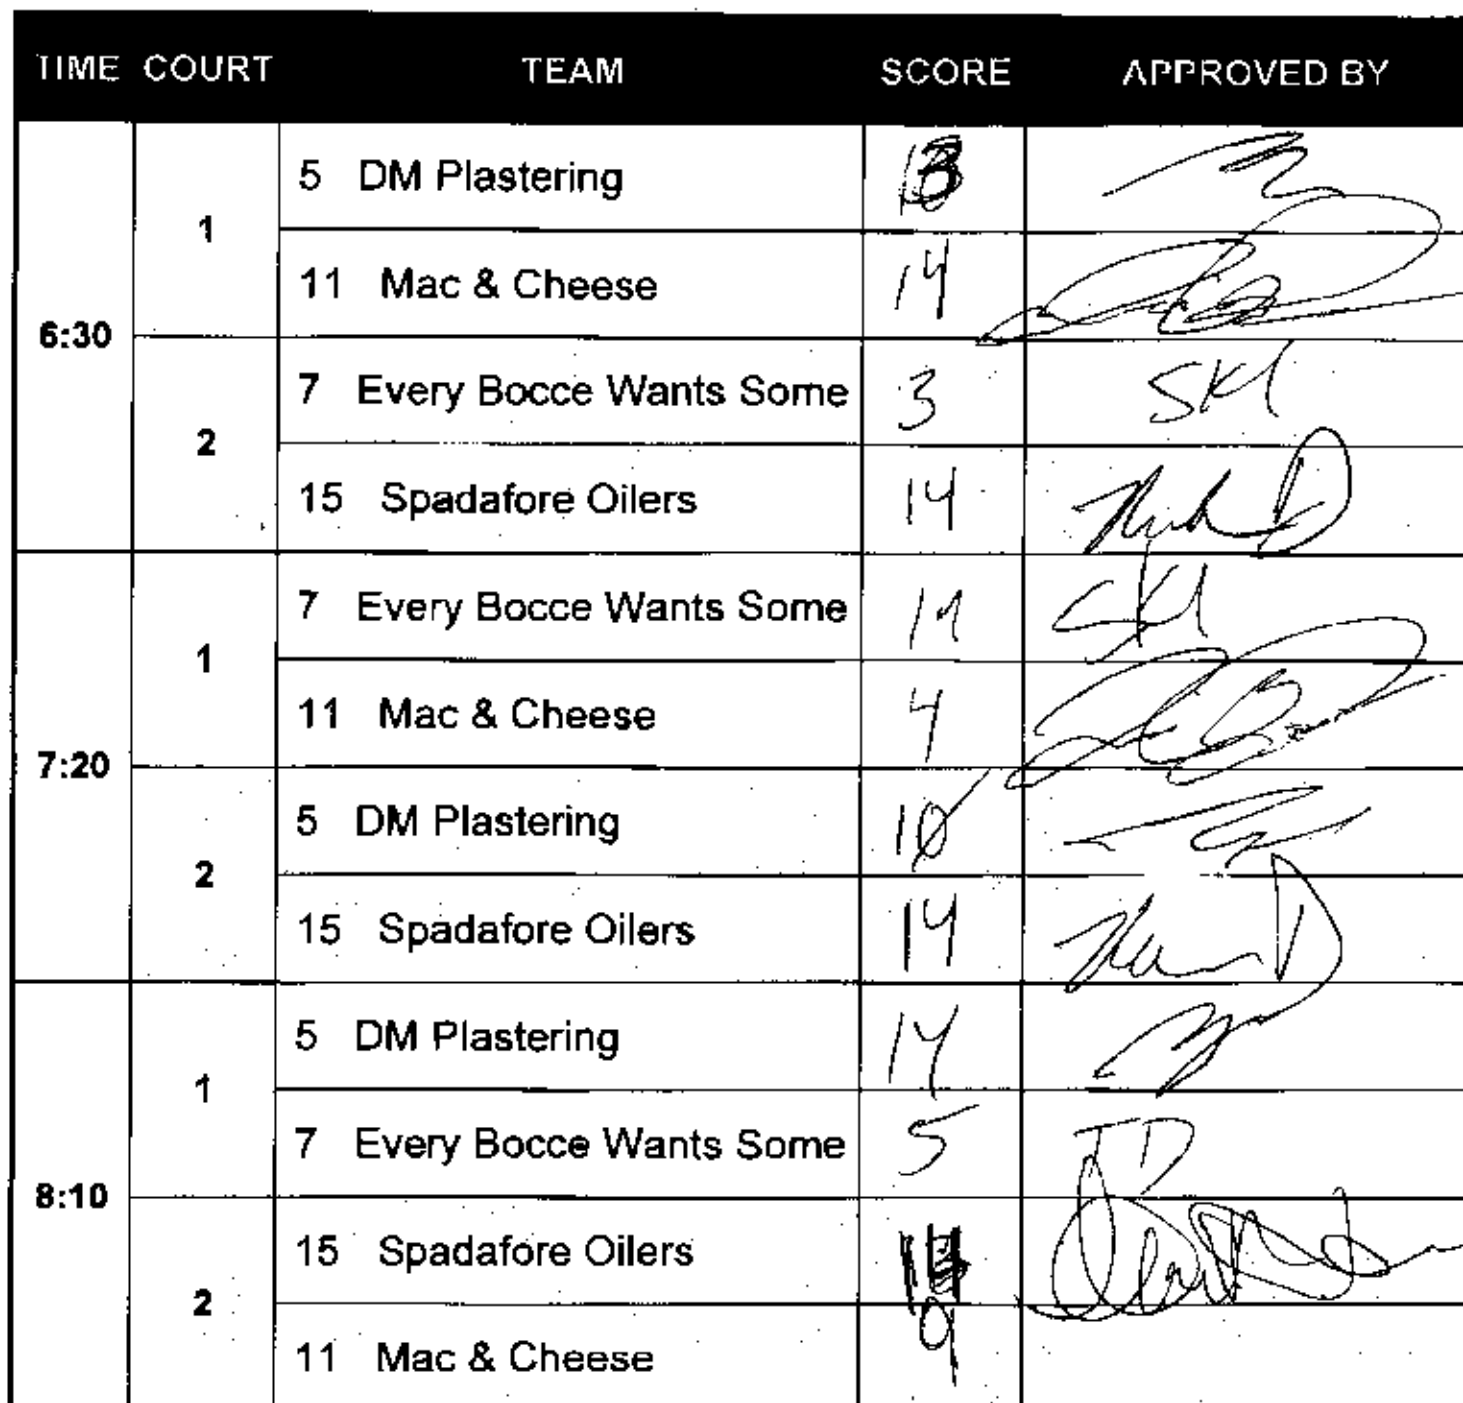 TIME COURT TEAM SCORE APPROVED BY
6:30
1
5 DM Plastering 13
11 Mac & Cheese 14
2
7 Every Bocce Wants Some 3 SKl
15 Spadafore Oilers 14
7:20
1
7 Every Bocce Wants Some 14 SKl
11 Mac & Cheese 4
2
5 DM Plastering 10
15 Spadafore Oilers 14
8:10
1
5 DM Plastering 14
7 Every Bocce Wants Some 5
2
15 Spadafore Oilers 14
11 Mac & Cheese 9